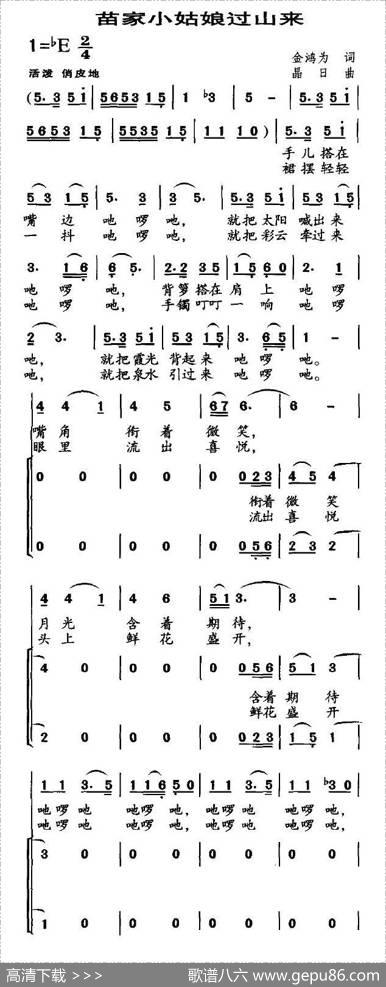 苗家小姑娘过山来
1=♭E 2/4
金鸿为 词
活泼 俏皮地
晶日 曲
(5.3 5i | 5653 15 | 1 ♭3 | 5 - | 5.3 5i |
5653 15 | 5535 15 | 11 10) | 5.3 5i |
手儿搭在
裙摆轻轻
53 15 | 5. 3 | 3 5. | 5.3 5i | 53 15 |
嘴边吔啰吔, 就把太阳 喊出来
一抖吔啰吔, 就把彩云 牵过来
3. 16 | 6 5. | 2.2 35 | 15 60 | 2. 1 |
吔啰吔, 背箩搭在肩上吔啰
吔啰吔, 手镯叮叮一响吔啰
2 3. | 5.3 5i | 53 15 | 3. 65 | 1 - |
吔, 就把霞光 背起来 吔啰吔。
吔, 就把泉水 引过来 吔啰吔。
4 4 1 | 4 5 | 67 6. | 6 - |
嘴角 衔着 微笑,
眼里 流出 喜悦,
0 0 | 0 0 | 0 023 | 45 4 |
衔着 微笑
流出 喜悦
0 0 | 0 0 | 0 056 | 23 2 |
4 4 1 | 4 6 | 513. | 3 - |
月光 含着 期待,
头上 鲜花 盛开,
4 0 | 0 0 | 0 056 | 51 3 |
含着 期待
鲜花 盛开
2 0 | 0 0 | 0 023 | 15 1 |
11 3.5 | 116 50 | 11 3.5 | 11 ♭30 |
吔啰吔 吔啰吔, 吔啰吔 吔啰吔,
吔啰吔 吔啰吔, 吔啰吔 吔啰吔,
3 0 | 0 0 | 0 0 | 0 0 |
1 0 | 0 0 | 0 0 | 0 0 |
高清下载 >>> 歌谱八六 www.gepu86.com